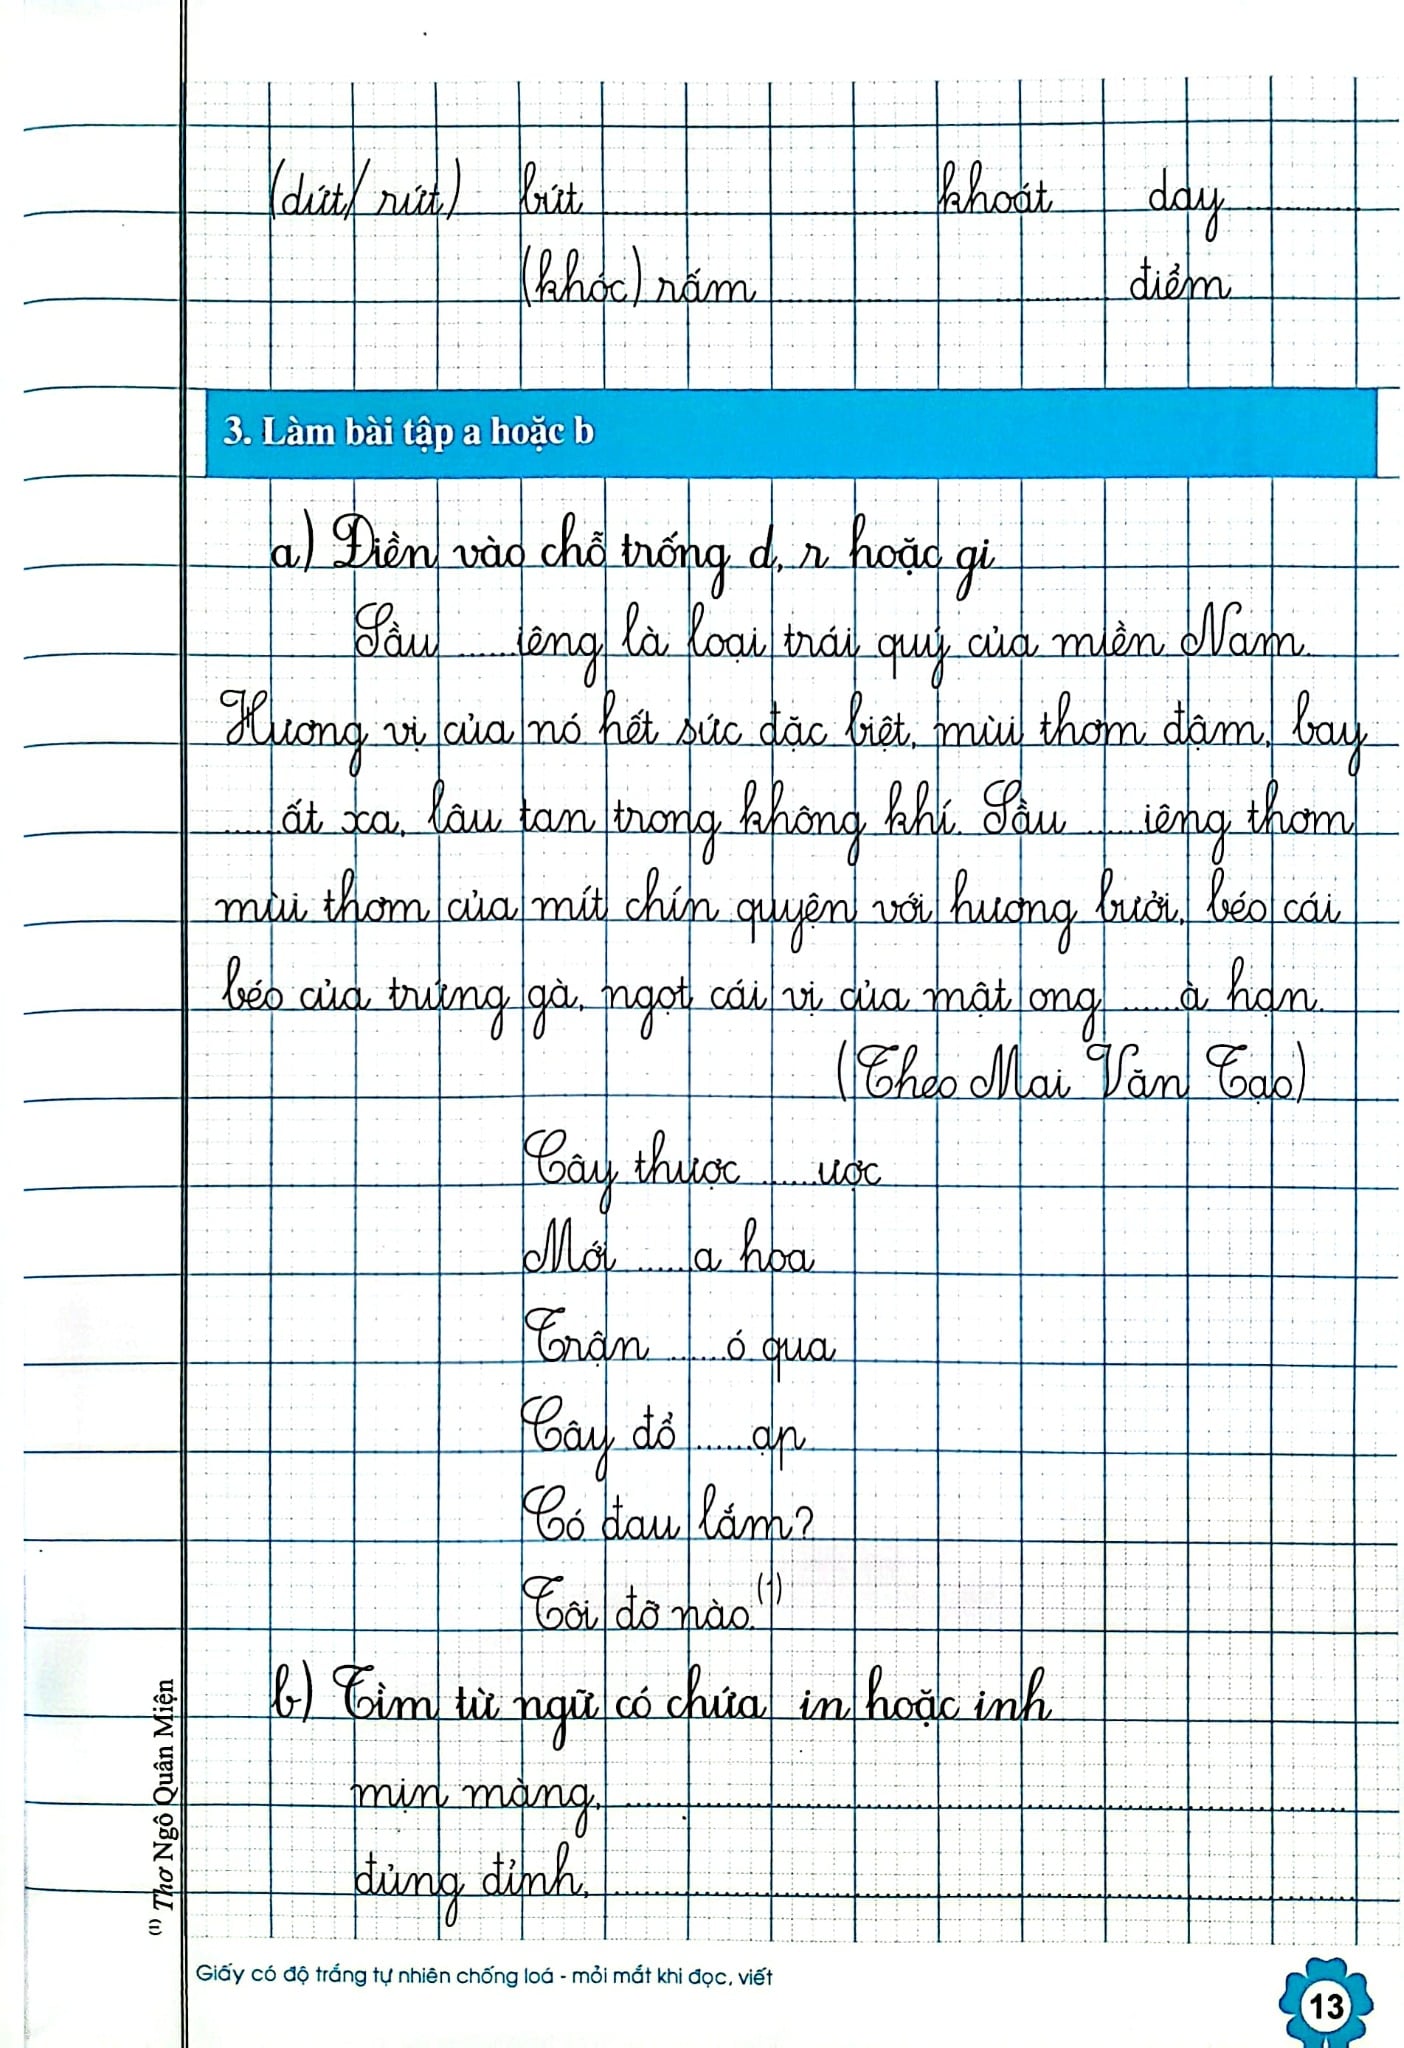 (dứt/ rứt) bứt ........................ khoát day ............
(khóc) rấm ............ ............ điểm
3. Làm bài tập a hoặc b
a) Điền vào chỗ trống d, r hoặc gi
Sầu ......iêng là loại trái quý của miền Nam.
Hương vị của nó hết sức đặc biệt, mùi thơm đậm, bay
......ất xa, lâu tan trong không khí. Sầu ......iêng thơm
mùi thơm của mít chín quyện với hương bưởi, béo cái
béo của trứng gà, ngọt cái vị của mật ong ......à hạn.
(Theo Mai Văn Tạo)
Cây thược ......ược
Mới ......a hoa
Trận ......ó qua
Cây đổ ......ạp
Có đau lắm?
Tôi đỡ nào.(1)
b) Tìm từ ngữ có chứa in hoặc inh
mịn màng, ............................................................
đủng đỉnh, ............................................................
(1) Thơ Ngô Quân Miện
Giấy có độ trắng tự nhiên chống loá - mỏi mắt khi đọc, viết
13